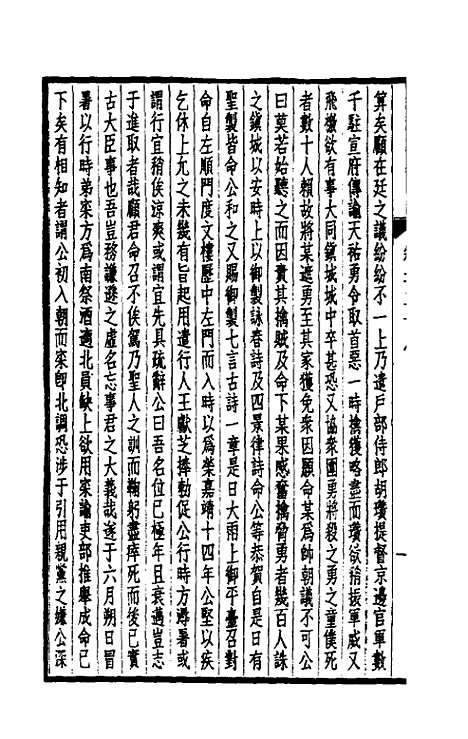 算矣顧在廷之議紛紛不一上乃遣戶部侍郎胡瓚提督京邊官軍數
千駐宣府傳諭天祐勇令取首惡一時擒獲略盡而瓚欲稍振軍威又
飛檄欲有事大同鎮城城中卒甚恐又協衆圍勇將殺之勇之童僕死
者數十人賴故將某遮勇至其家獲免衆因願命某爲帥朝議不可公
曰莫若始聽之而因責其擒賊及命下某果感奮擒脅勇者幾百人誅
之鎮城以安時上以御製詠春詩及四景律詩命公等恭賀自是日有
聖製皆命公和之又賜御製七言古詩一章是日大雨上御平臺召對
命自左順門度文樓歷中左門而入時以爲榮嘉靖十四年公堅以疾
乞休上允之未幾有旨起用遣行人王獻芝捧勅促公行時方溽暑或
謂行宜稍俟涼爽或謂宜先具疏辭公曰吾名位已極年且衰邁豈志
于進取者哉顧君命召不俟駕乃聖人之訓而鞠躬盡瘁死而後已實
古大臣事也吾豈務謙遜之虛名忘事君之大義哉遂于六月朔日冒
暑以行時弟寀方爲南祭酒適北員缺上欲用寀諭吏部推舉成命已
下矣有相知者謂公初入朝而寀卽北調恐涉于引用親黨之嫌公深